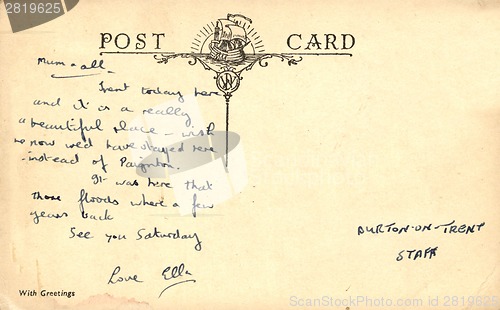 POST CARD
Mum & all
Went today here
and it is a really
a beautiful place - wish
now we'd have stayed here
instead of Paignton.
It was here that
those floods where a few
years back
See you Saturday
Love Ella
BURTON-ON-TRENT
STAFF
With Greetings
2819625
© Stockphotos.com